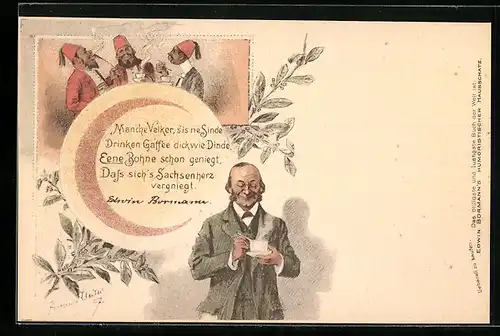 „Manche Velker, s'is ne Sinde
Drinken Gaffee dick wie Dinde,
Eene Bohne schon geniegt,
Daß sich's Sachsenherz
vergniegt.
Edwin Bormann.
Ueberall zu kaufen: Das billigste und lustigste Buch der Welt ist:
EDWIN BORMANN'S HUMORISTISCHER HAUSSCHATZ.